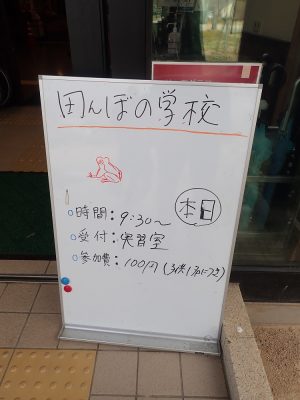 田んぼの学校
本日
○時間：9:30〜
○受付：実習室
○参加費：100円(子供1名につき)